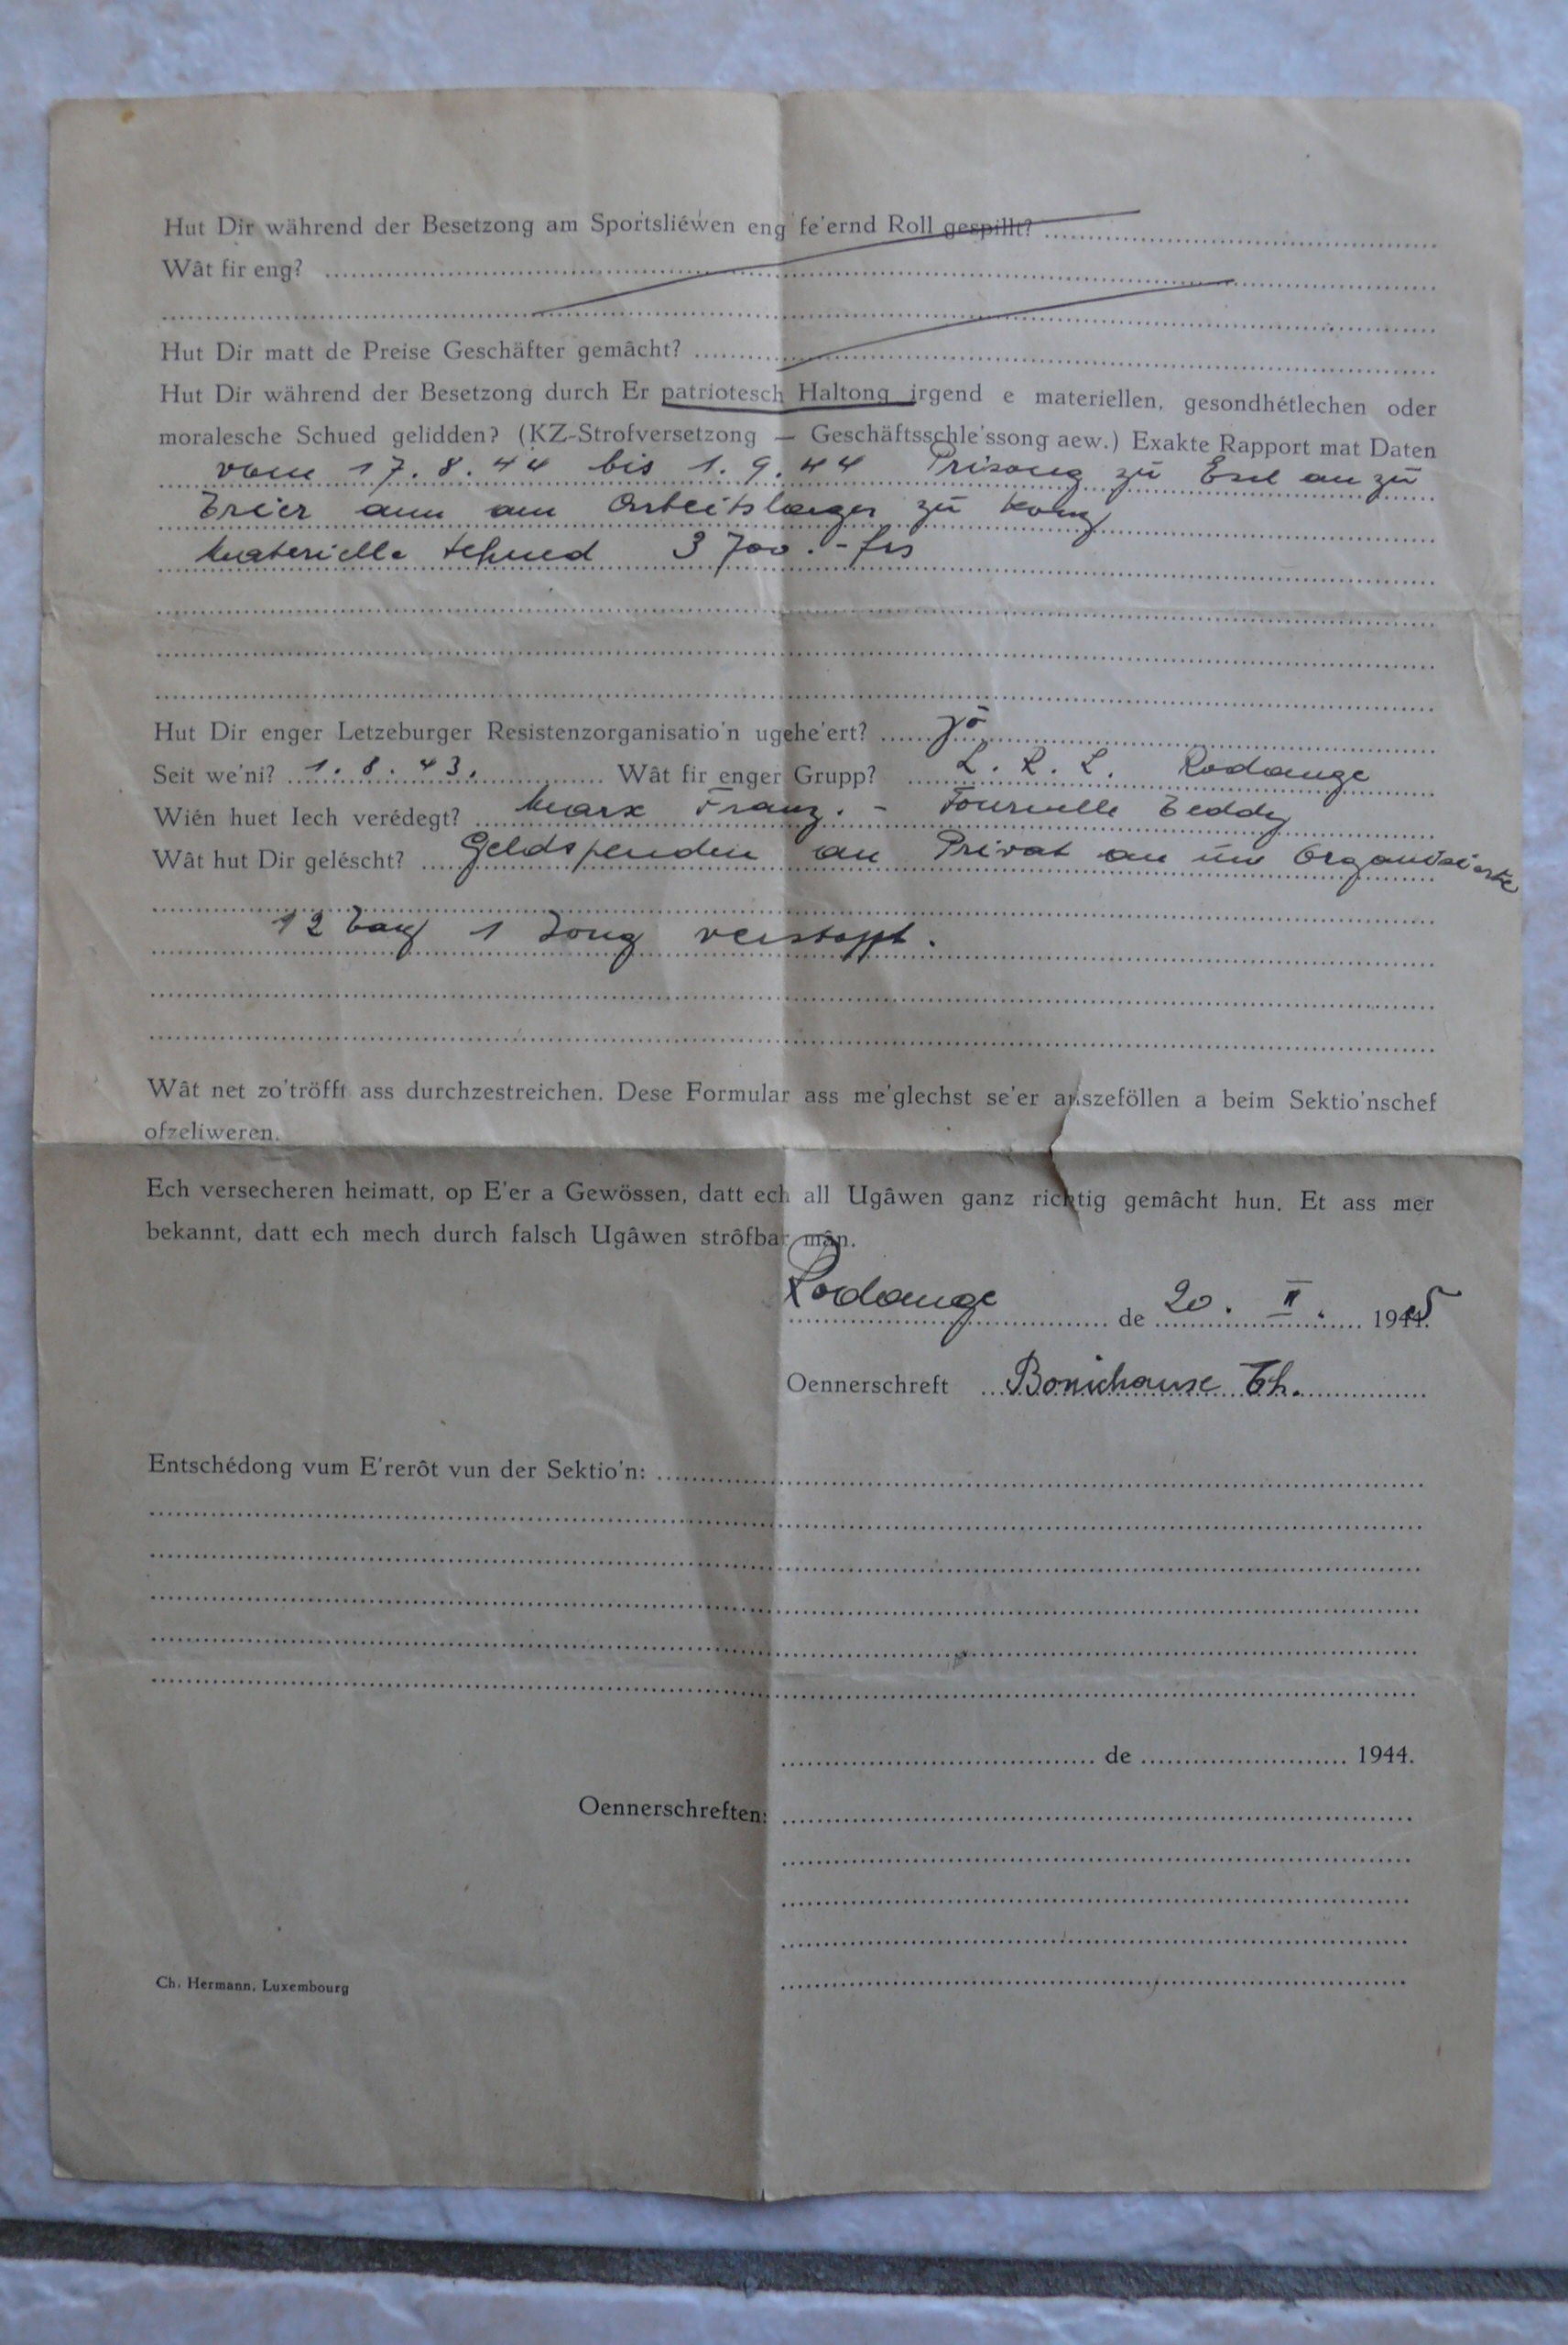 Hut Dir während der Besetzong am Sportsliéwen eng fe'ernd Roll gespillt?
Wât fir eng?
Hut Dir matt de Preise Geschäfter gemâcht?
Hut Dir während der Besetzong durch Er patriotesch Haltong irgend e materiellen, gesondhétlechen oder
moralesche Schued gelidden? (KZ-Strofversetzong — Geschäftsschle'ssong aew.) Exakte Rapport mat Daten
vom 17.8.44 bis 1.9.44 Prisong zu Esch an zu
Trier ann am Arbeitslager zu Konz
Materielle Schued 3700.- frs
Hut Dir enger Letzeburger Resistenzorganisatio'n ugehe'ert? Jo
Seit we'ni? 1.8.43. Wât fir enger Grupp? L.R.L. Rodange
Wién huet Iech verédegt? Marx Franz. - Tournelle Teddy
Wât hut Dir geléscht? Geldspenden an Privat an un Organisierte
12 Tag 1 Jong verstoppt.
Wât net zo'tröfft ass durchzestreichen. Dese Formular ass me'glechst se'er auszeföllen a beim Sektio'nschef
ofzeliweren.
Ech versecheren heimatt, op E'er a Gewössen, datt ech all Ugâwen ganz richtig gemâcht hun. Et ass mer
bekannt, datt ech mech durch falsch Ugâwen strôfbar mân.
Rodange de 20. II. 1945
Oennerschreft Bonichause Th.
Entschédong vum E'rerôt vun der Sektio'n:
de 1944.
Oennerschreften:
Ch. Hermann, Luxembourg